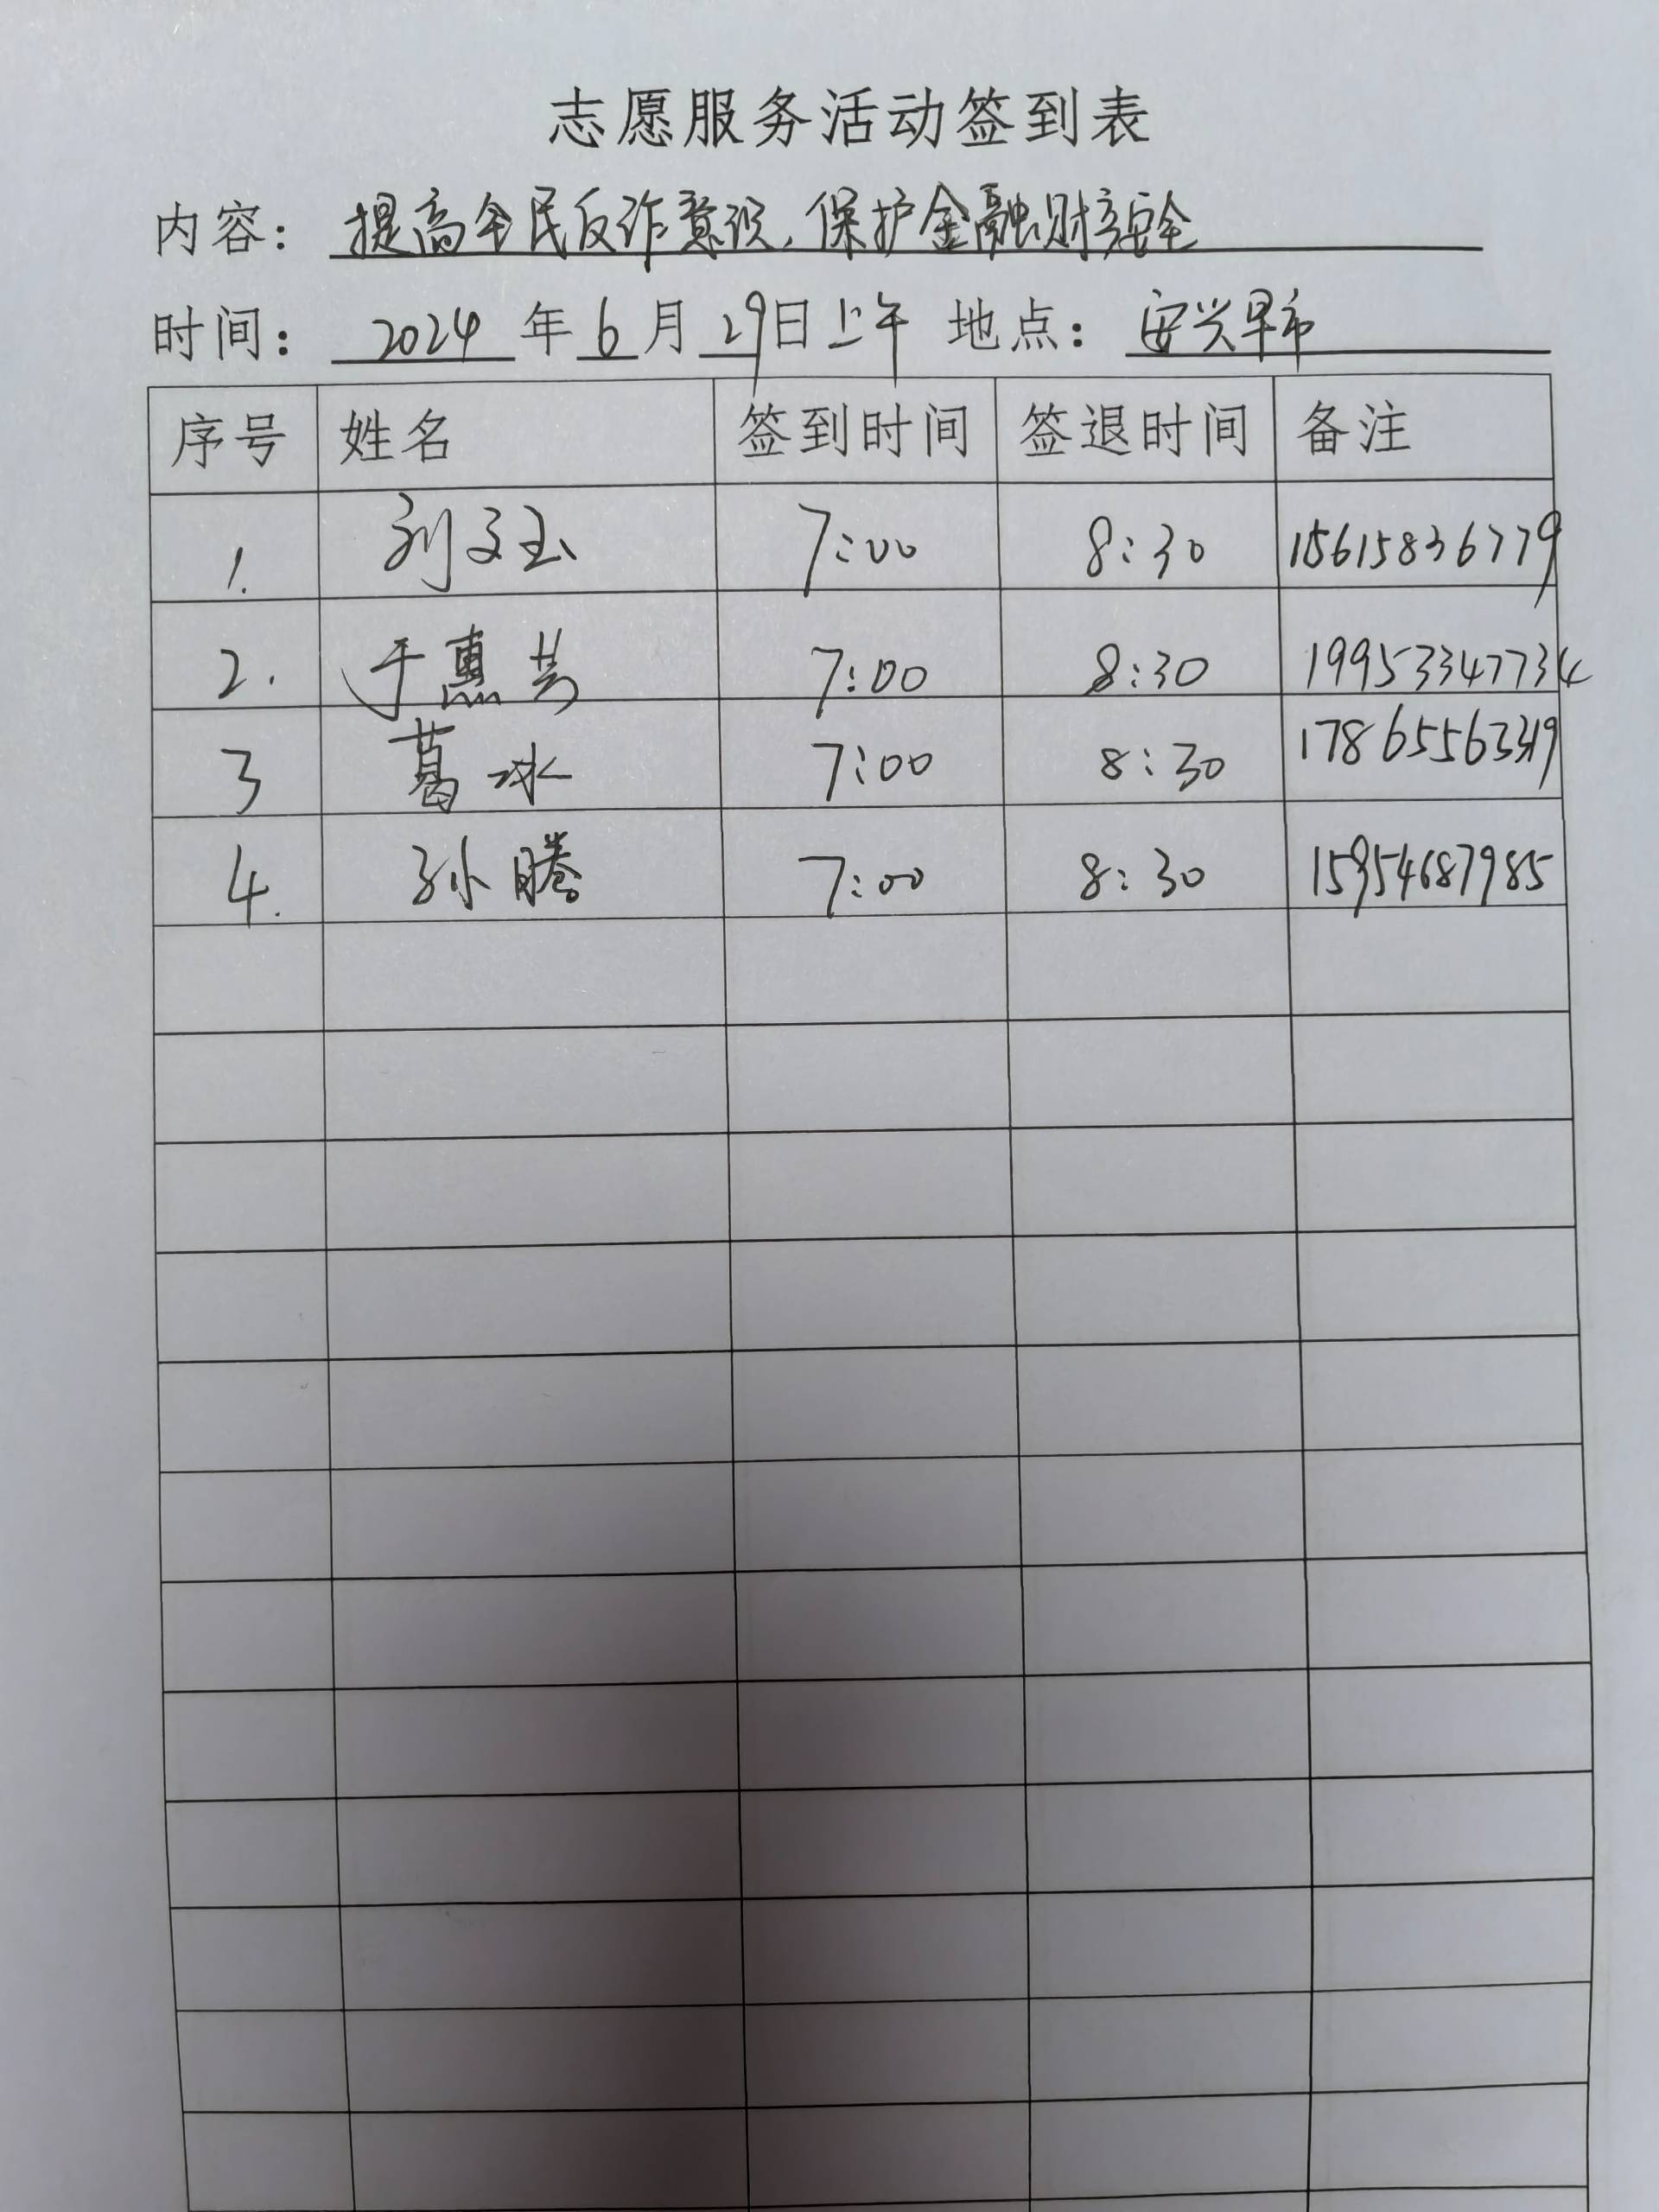 志愿服务活动签到表
内容：提高全民反诈意识，保护金融财产安全
时间：2024年6月29日上午 地点：安兴早市
序号 姓名 签到时间 签退时间 备注
1. 刘文玉 7:00 8:30 15615836779
2. 于惠芸 7:00 8:30 19953347734
3 葛冰 7:00 8:30
4. 孙腾 7:00 8:30 15954687985